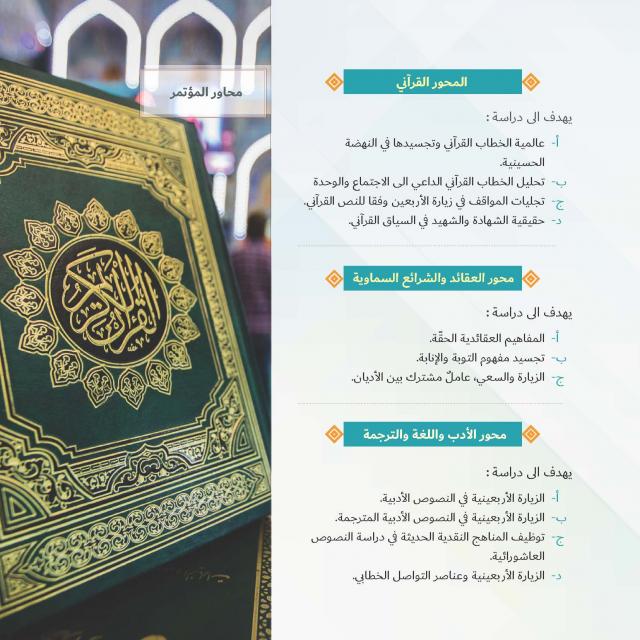 محاور المؤتمر
القرآن الكريم
المحور القرآني
يهدف الى دراسة :
أ- عالمية الخطاب القرآني وتجسيدها في النهضة
الحسينية.
ب- تحليل الخطاب القرآني الداعي الى الاجتماع والوحدة
ج- تجليات المواقف في زيارة الأربعين وفقا للنص القرآني.
د- حقيقية الشهادة والشهيد في السياق القرآني.
محور العقائد والشرائع السماوية
يهدف الى دراسة :
أ- المفاهيم العقائدية الحقّة.
ب- تجسيد مفهوم التوبة والإنابة.
ج- الزيارة والسعي، عاملٌ مشترك بين الأديان.
محور الأدب واللغة والترجمة
يهدف الى دراسة :
أ- الزيارة الأربعينية في النصوص الأدبية.
ب- الزيارة الأربعينية في النصوص الأدبية المترجمة.
ج- توظيف المناهج النقدية الحديثة في دراسة النصوص
العاشورائية.
د- الزيارة الأربعينية وعناصر التواصل الخطابي.